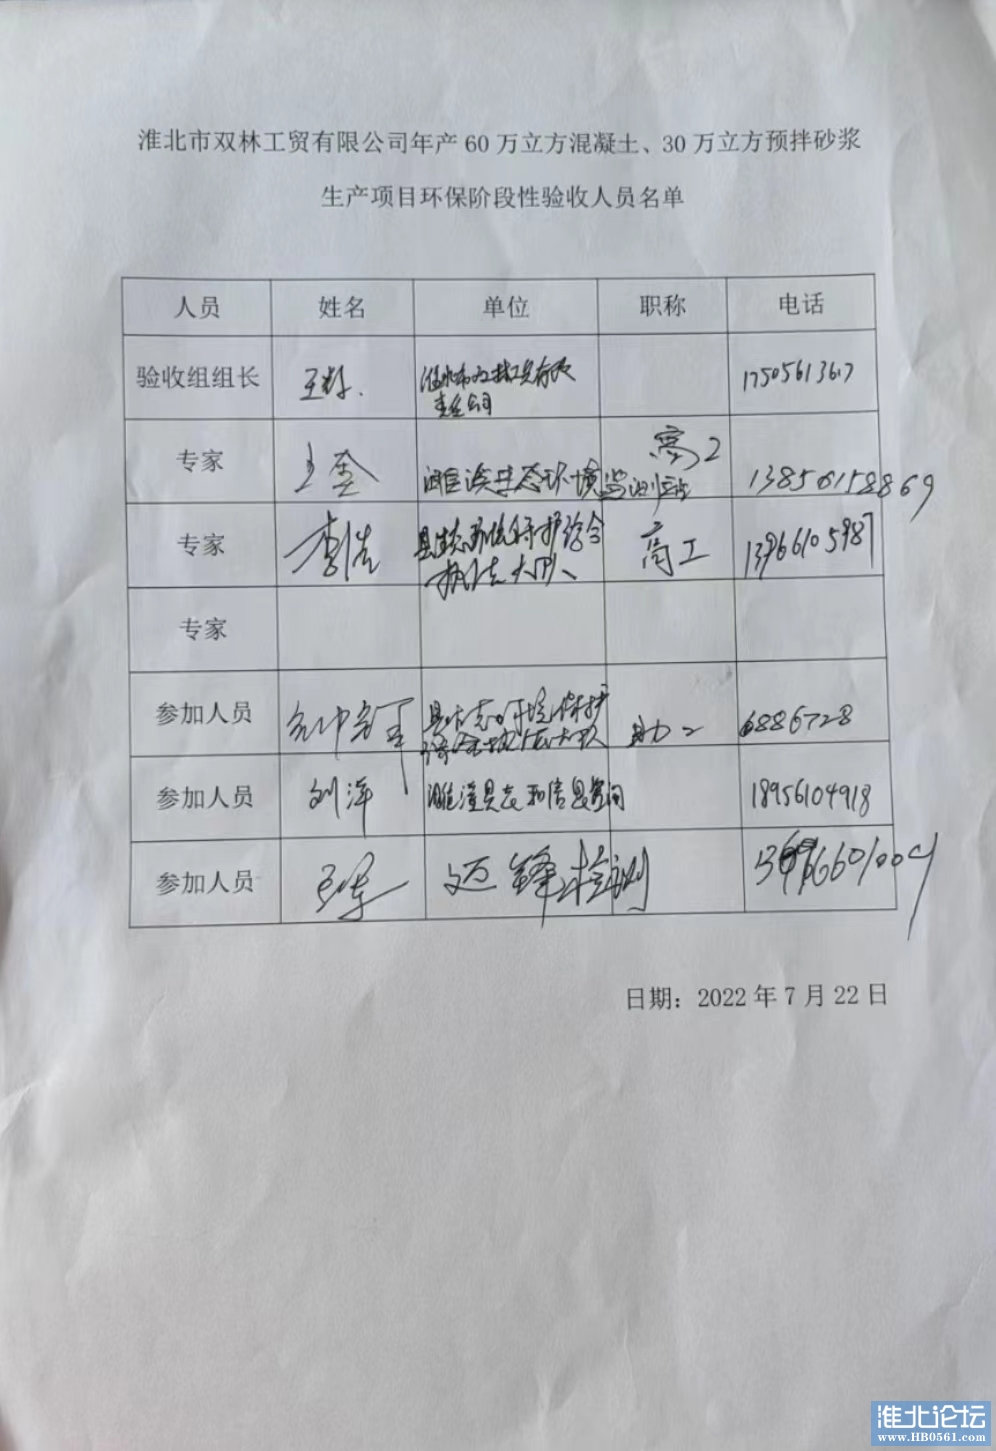 淮北市双林工贸有限公司年产 60 万立方混凝土、30 万立方预拌砂浆
生产项目环保阶段性验收人员名单
人员 姓名 单位 职称 电话
验收组组长 17505613617
责任公司
专家 高工
王金 濉溪生态环境监测站 13856158869
专家 李浩 县生态环境保护综合 高工
执法大队
专家
参加人员 县生态环境保护 助工 6886728
综合执法大队
参加人员 刘萍 18956104918
参加人员 迈锋检测
日期：2022 年 7 月 22 日
淮北论坛
www.HB0561.com